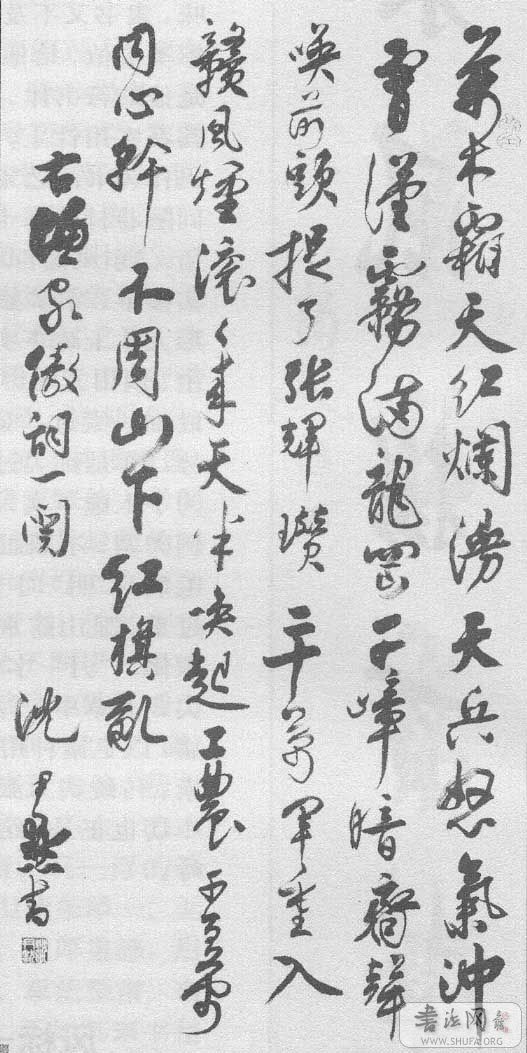 萬木霜天紅爛漫天兵怒氣沖
霄漢霧滿龍岡千嶂暗齊聲
喚前頭捉了張輝瓚二十萬軍重入
贛風煙滾〻來天半喚起工農千百萬
同心幹不周山下紅旗亂
右漁家傲詞一闋 沈尹默書
書法网
WWW.SHUFA.ORG